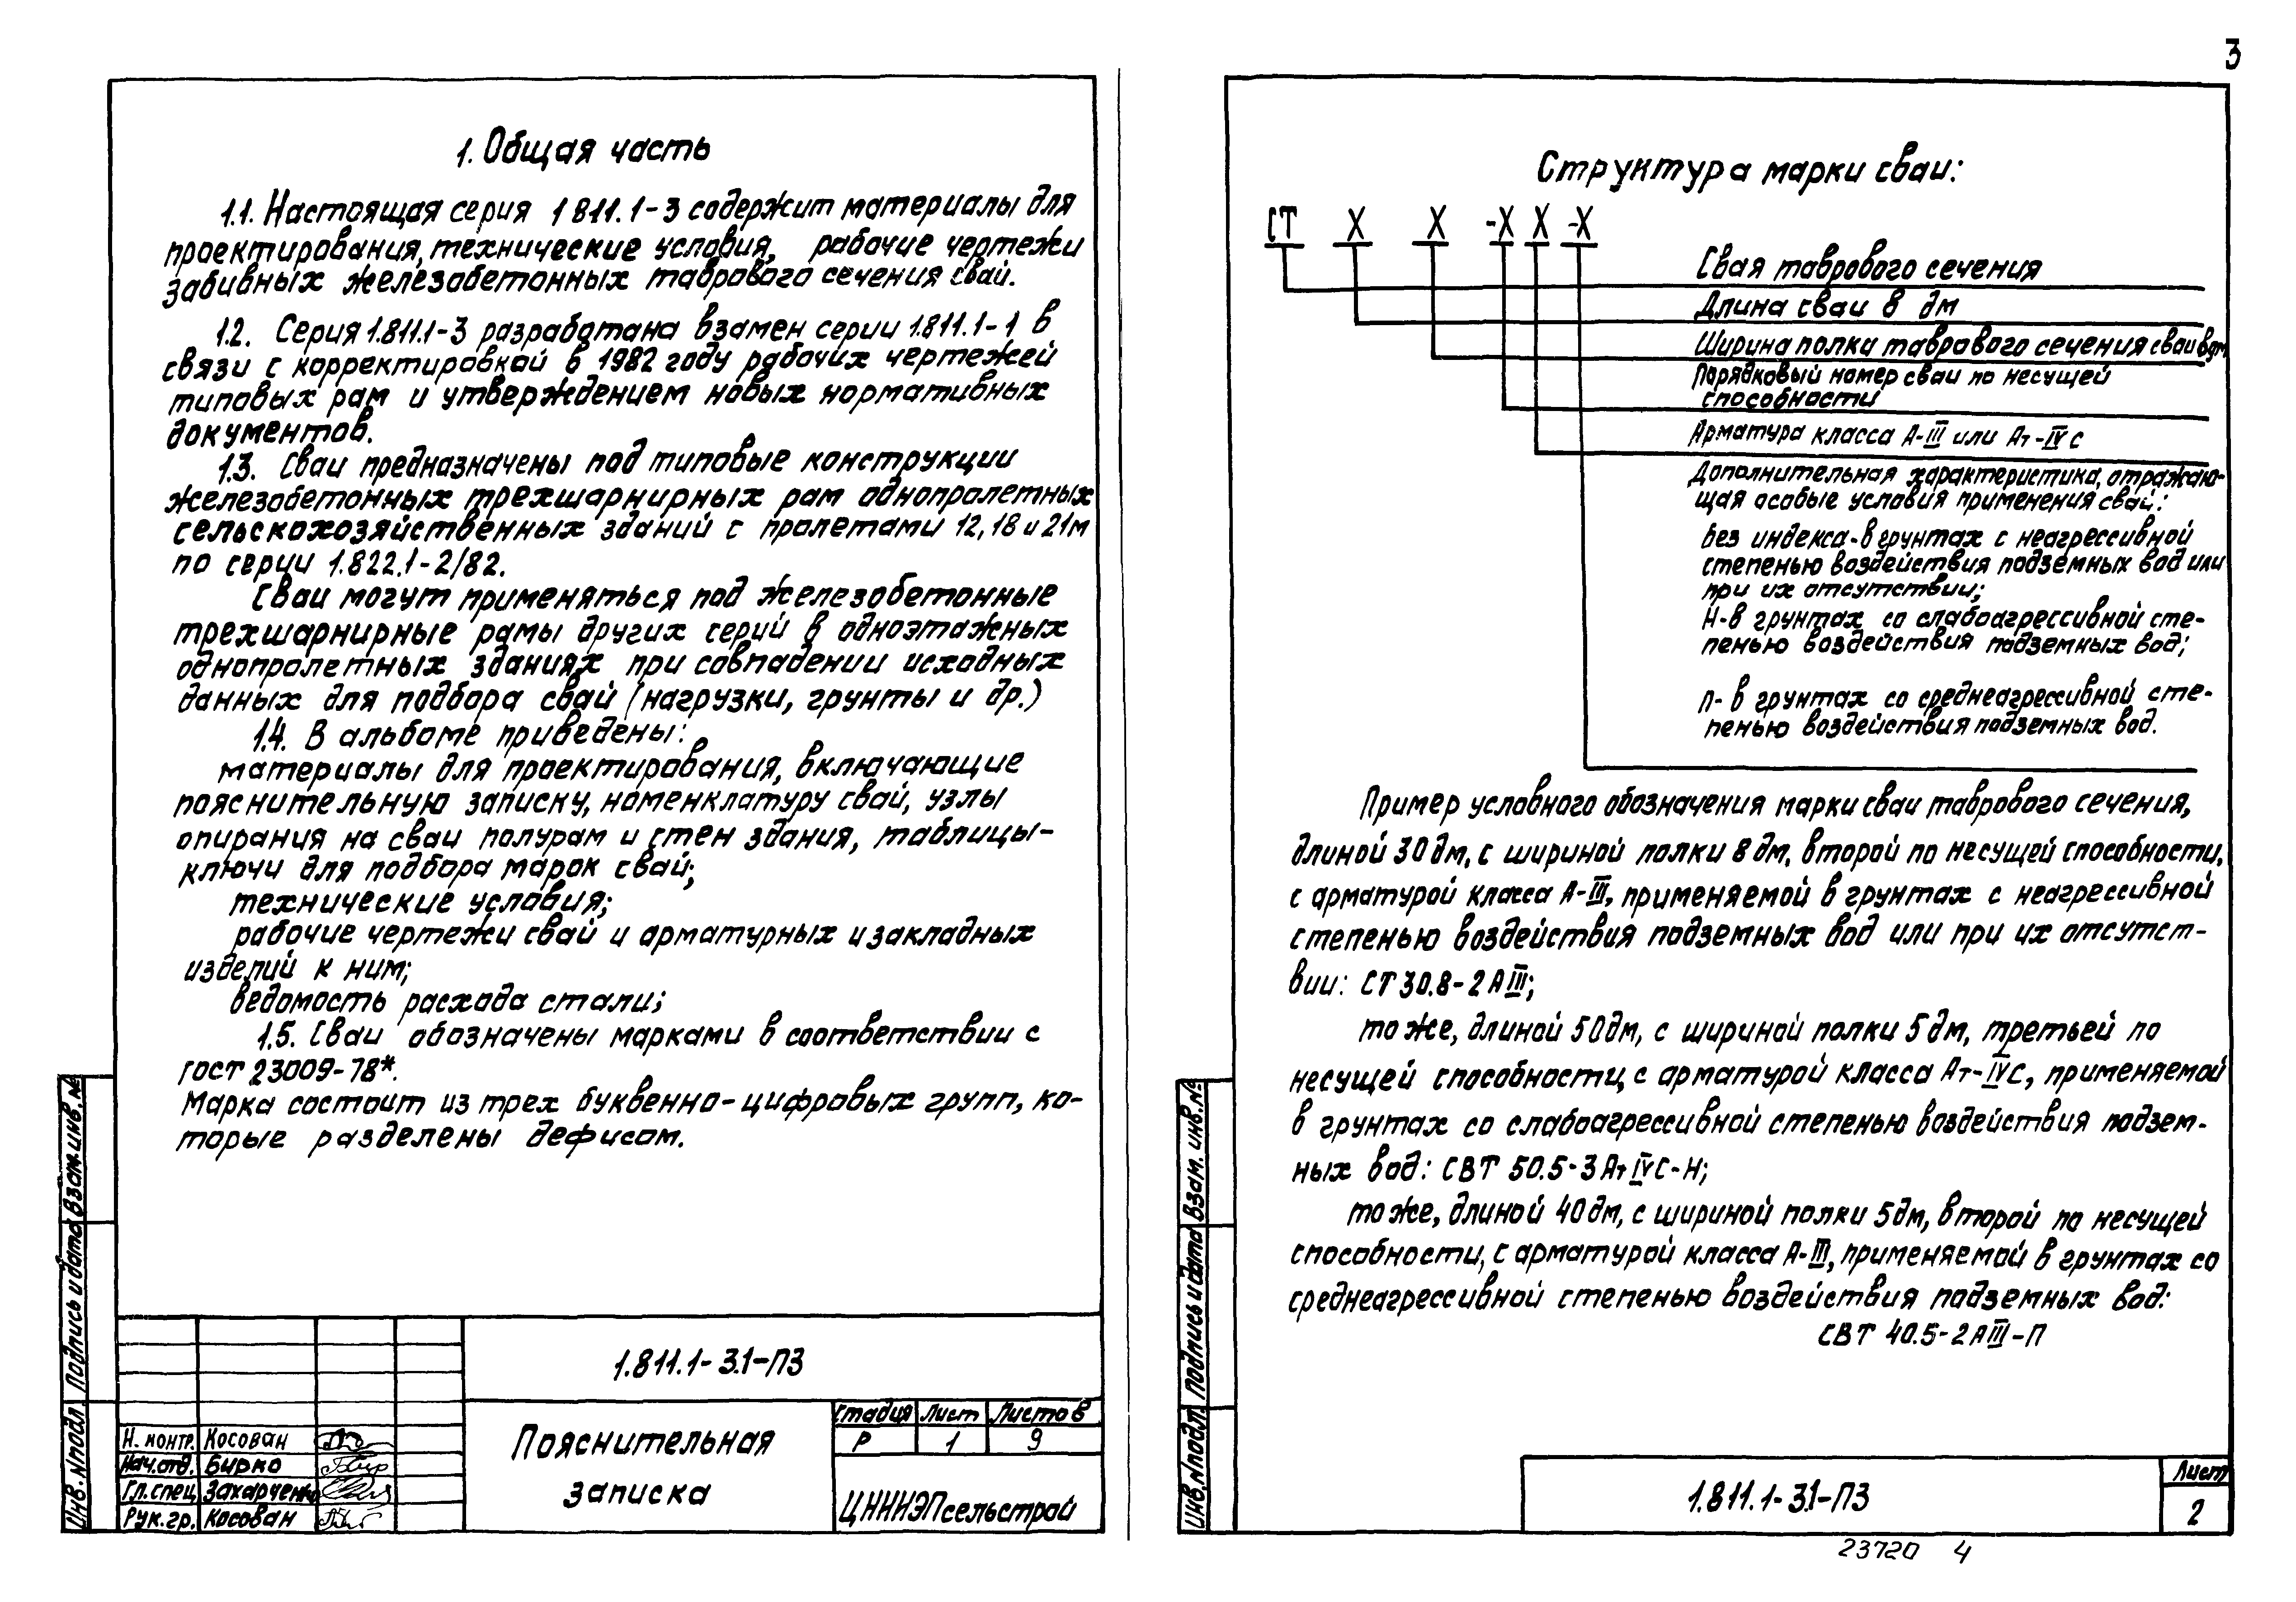 3
1. Общая часть
1.1. Настоящая серия 1 811.1-3 содержит материалы для
проектирования, технические условия, рабочие чертежи
забивных железобетонных таврового сечения свай.
1.2. Серия 1.811.1-3 разработана взамен серии 1.811.1-1 в
связи с корректировкой в 1982 году рабочих чертежей
типовых рам и утверждением новых нормативных
документов.
1.3. Сваи предназначены под типовые конструкции
железобетонных трехшарнирных рам однопролетных
сельскохозяйственных зданий с пролетами 12, 18 и 21м
по серии 1.822.1-2/82.
Сваи могут применяться под железобетонные
трехшарнирные рамы других серий в одноэтажных
однопролетных зданиях при совпадении исходных
данных для подбора свай (нагрузки, грунты и др.)
1.4. В альбоме приведены:
материалы для проектирования, включающие
пояснительную записку, номенклатуру свай, узлы
опирания на сваи полурам и стен здания, таблицы-
ключи для подбора марок свай;
технические условия;
рабочие чертежи свай и арматурных и закладных
изделий к ним;
ведомость расхода стали;
1.5. Сваи обозначены марками в соответствии с
ГОСТ 23009-78*.
Марка состоит из трех буквенно-цифровых групп, ко-
торые разделены дефисом.
Инв. № подл. Подпись и дата Взам. инв. №
1.811.1-3.1-ПЗ
Н. контр. Косован
Нач. отд. Бирко
Гл. спец. Захарченко
Рук. гр. Косован
Пояснительная
записка
Стадия Лист Листов
Р 1 9
ЦНИИЭПсельстрой
Структура марки сваи:
СТ Х Х -Х Х -Х
Свая таврового сечения
Длина сваи в дм
Ширина полки таврового сечения сваи в дм
Порядковый номер сваи по несущей
способности
Арматура класса А-III или Ат-IVС
Дополнительная характеристика, отражаю-
щая особые условия применения свай:
без индекса - в грунтах с неагрессивной
степенью воздействия подземных вод или
при их отсутствии;
Н - в грунтах со слабоагрессивной сте-
пенью воздействия подземных вод;
П - в грунтах со среднеагрессивной сте-
пенью воздействия подземных вод.
Пример условного обозначения марки сваи таврового сечения,
длиной 30 дм, с шириной полки 8 дм, второй по несущей способности,
с арматурой класса А-III, применяемой в грунтах с неагрессивной
степенью воздействия подземных вод или при их отсутст-
вии: СТ 30.8-2 АIII;
то же, длиной 50 дм, с шириной полки 5 дм, третьей по
несущей способности, с арматурой класса Ат-IVС, применяемой
в грунтах со слабоагрессивной степенью воздействия подзем-
ных вод: СВТ 50.5-3 АтIVС-Н;
то же, длиной 40 дм, с шириной полки 5 дм, второй по несущей
способности, с арматурой класса А-III, применяемой в грунтах со
среднеагрессивной степенью воздействия подземных вод:
СВТ 40.5-2 АIII-П
Инв. № подл. Подпись и дата Взам. инв. №
1.811.1-3.1-ПЗ
Лист
2
23720 4